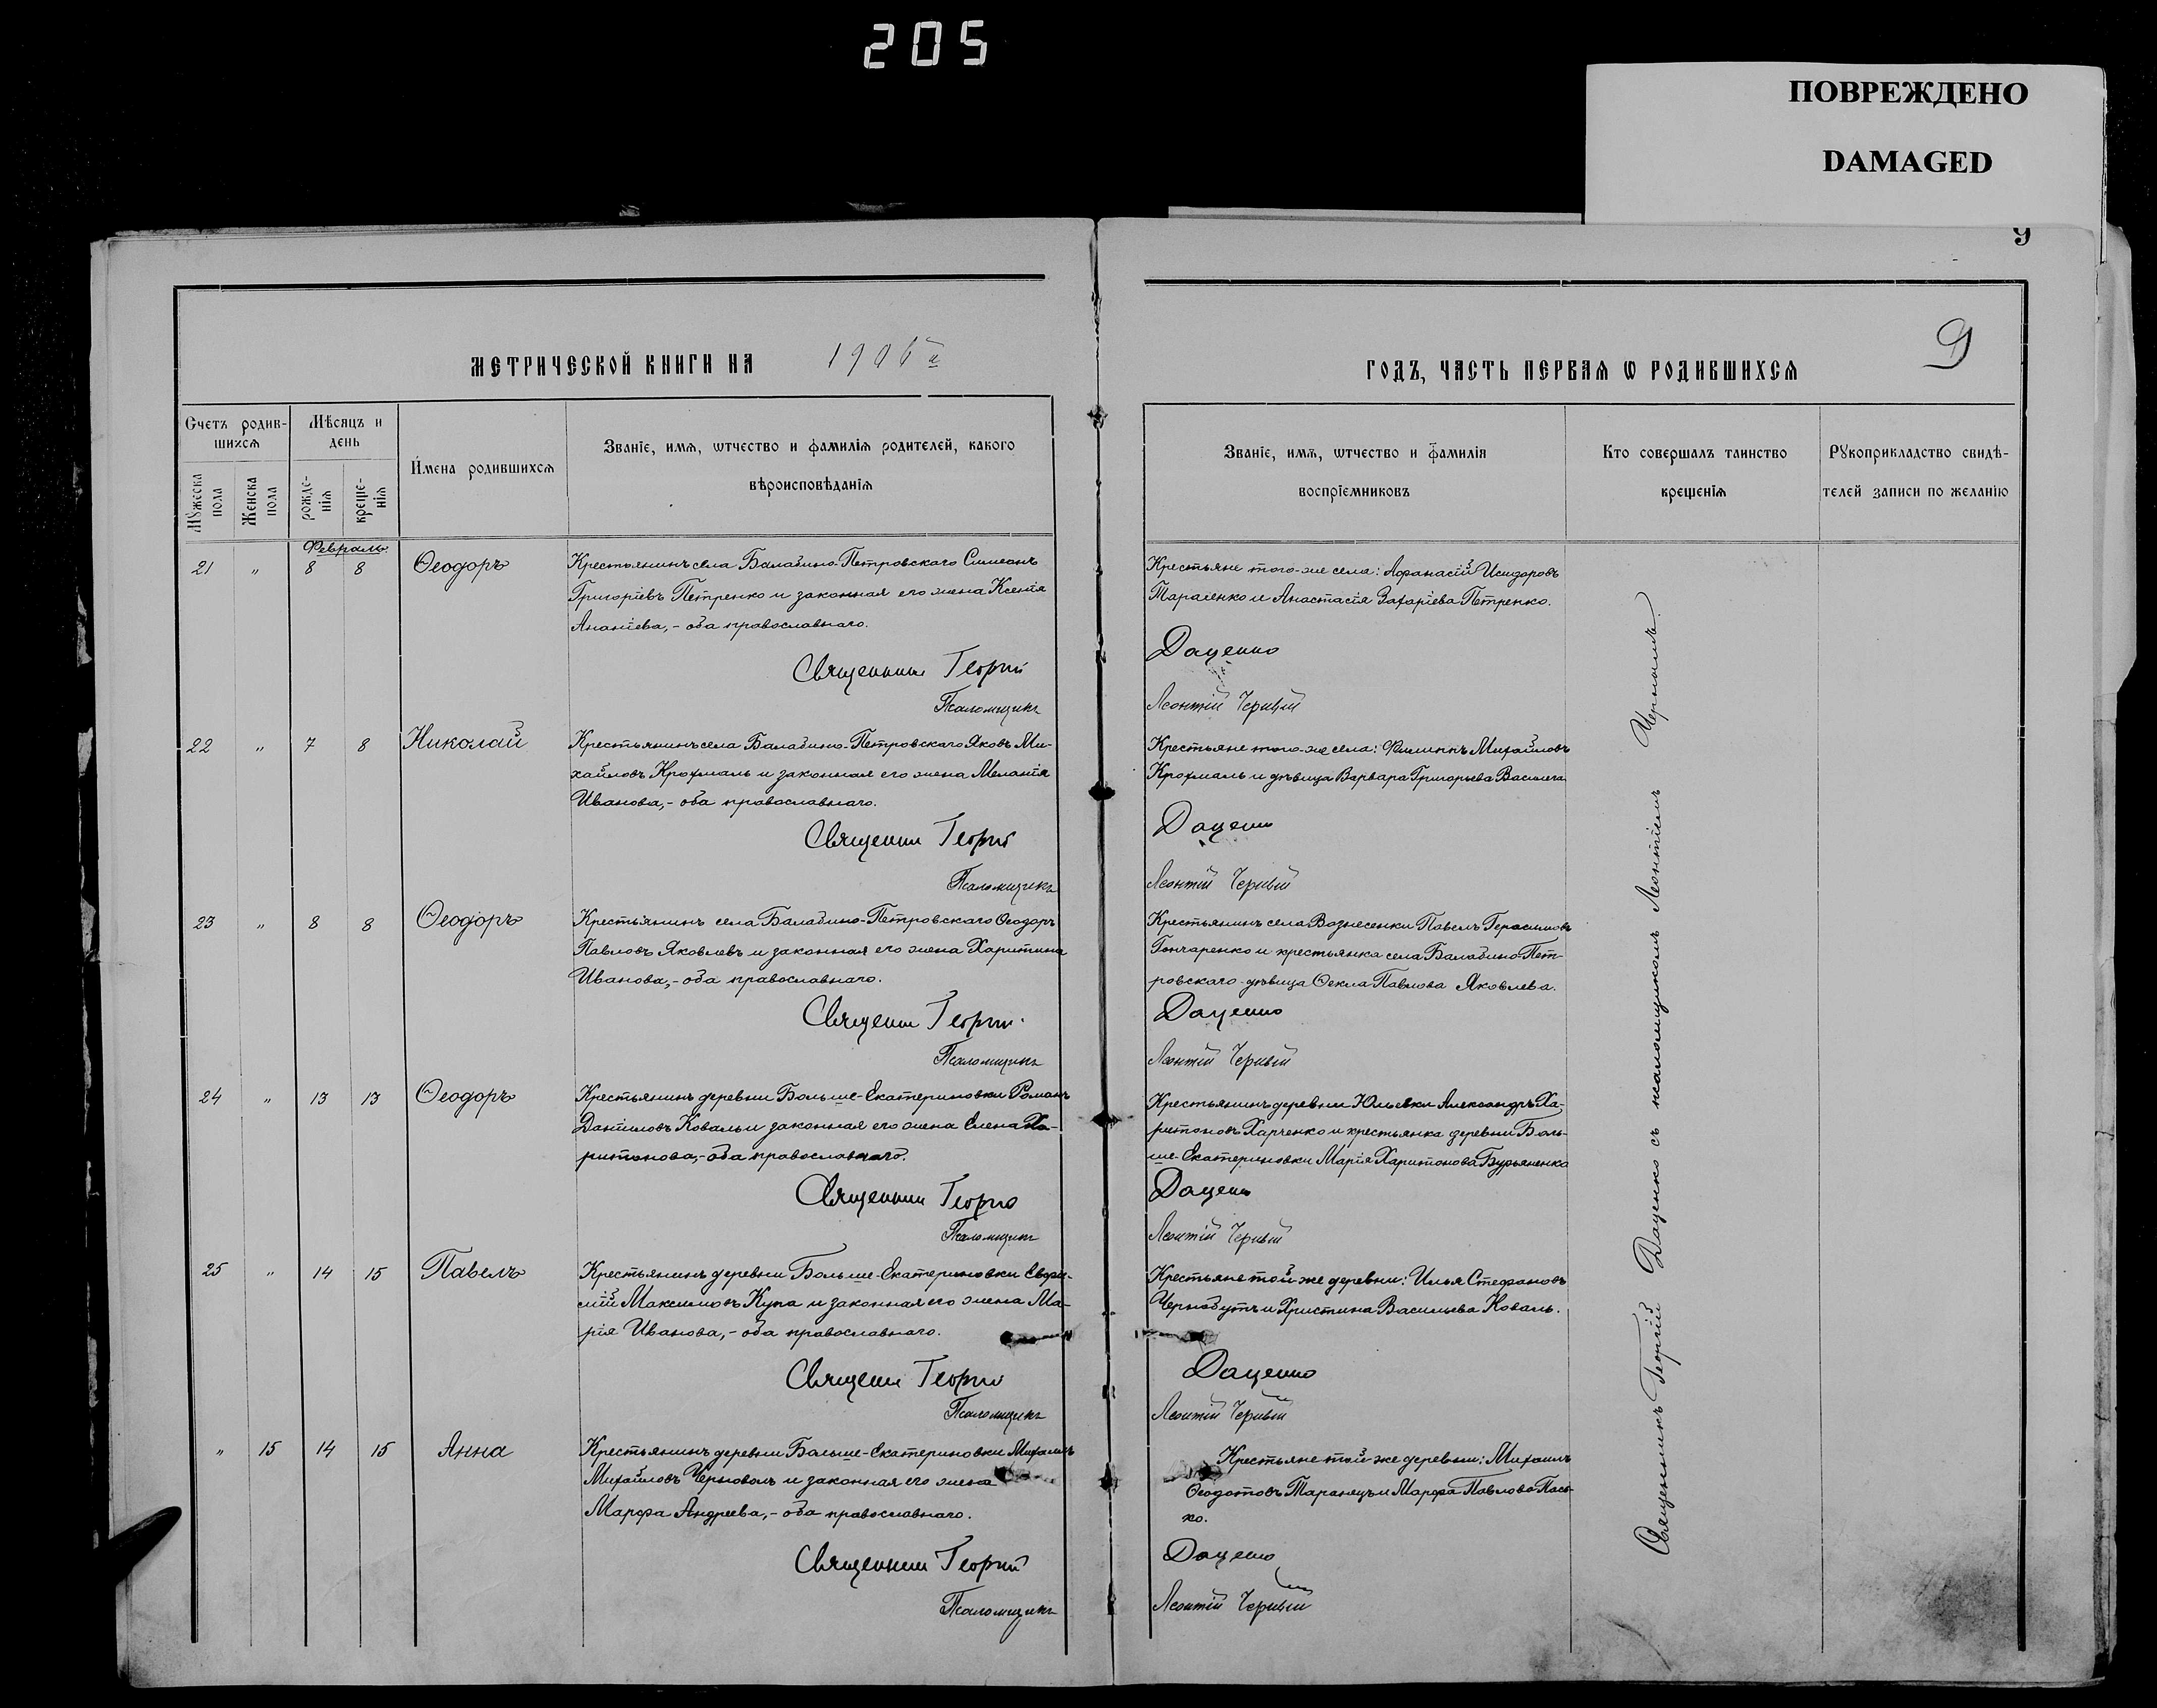 205
ПОВРЕЖДЕНО
DAMAGED
9
МЕТРИЧЕСКОЙ КНИГИ НА 1906й
ГОДЪ, ЧАСТЬ ПЕРВАЯ Ѡ РОДИВШИХСЯ
9
Счетъ родив-
шихся
Мѣсяцъ и
день
Имена родившихся
Званіе, имя, ѡтчество и фамилія родителей, какого
вѣроисповѣданія
Мужеска
пола
Женска
пола
рожде-
нія
креще-
нія
Званіе, имя, ѡтчество и фамилія
воспріемниковъ
Кто совершалъ таинство
крещенія
Рукоприкладство свидѣ-
телей записи по желанію
Февраль.
21 " 8 8 Ѳеодоръ
Крестьянинъ села Балабино-Петровскаго Симеонъ
Григоріевъ Петренко и законная его жена Ксенія
Ананіева, - оба православнаго.
Священник Георгий
Псаломщикъ
Крестьяне того-же села: Афанасій Исидоровъ
Тараненко и Анастасія Захаріева Петренко.
Даценко
Леонтій
22 " 7 8 Николай
Крестьянинъ села Балабино-Петровскаго Яковъ Ми-
хайловъ Крохмаль и законная его жена Меланія
Иванова, - оба православнаго.
Священник Георгий
Псаломщикъ
Крестьяне того-же села: Филиппъ Михайловъ
Крохмаль и дѣвица Варвара Григорьева
Даценко
Леонтій
23 " 8 8 Ѳеодоръ
Крестьянинъ села Балабино-Петровскаго Ѳеодоръ
Павловъ Яковлевъ и законная его жена Харитина
Иванова, - оба православнаго.
Священник Георгий
Псаломщикъ
Крестьянинъ села Вознесенки Павелъ Герасимовъ
Гончаренко и крестьянка села Балабино-Пет-
ровскаго дѣвица Ѳекла Павлова Яковлева.
Даценко
Леонтій
24 " 13 13 Ѳеодоръ
Крестьянинъ деревни Больше-Екатериновки Романъ
Даниловъ Коваль и законная его жена Елена Ха-
ритонова, - оба православнаго.
Священник Георгий
Псаломщикъ
Крестьянинъ деревни Юльевки Александръ Ха-
ритоновъ Харченко и крестьянка деревни Боль-
ше-Екатериновки Марія Харитонова Бурьяненко
Даценко
Леонтій
25 " 14 15 Павелъ
Крестьянинъ деревни Больше-Екатериновки Евфи-
мій Максимовъ Купа и законная его жена Ма-
рія Иванова, - оба православнаго.
Священник Георгий
Псаломщикъ
Крестьяне той же деревни: Илья Стефановъ
и Христина Васильева Коваль.
Даценко
Леонтій
" 15 14 15 Анна
Крестьянинъ деревни Больше-Екатериновки Михаилъ
Михайловъ и законная его жена
Марфа Андреева, - оба православнаго.
Священник Георгий
Псаломщикъ
Крестьяне той же деревни: Михаилъ
Ѳеодотовъ Таранецъ и Марфа Павлова
ко.
Даценко
Леонтій
Священникъ Георгій Даценко съ псаломщикомъ Леонтіемъ